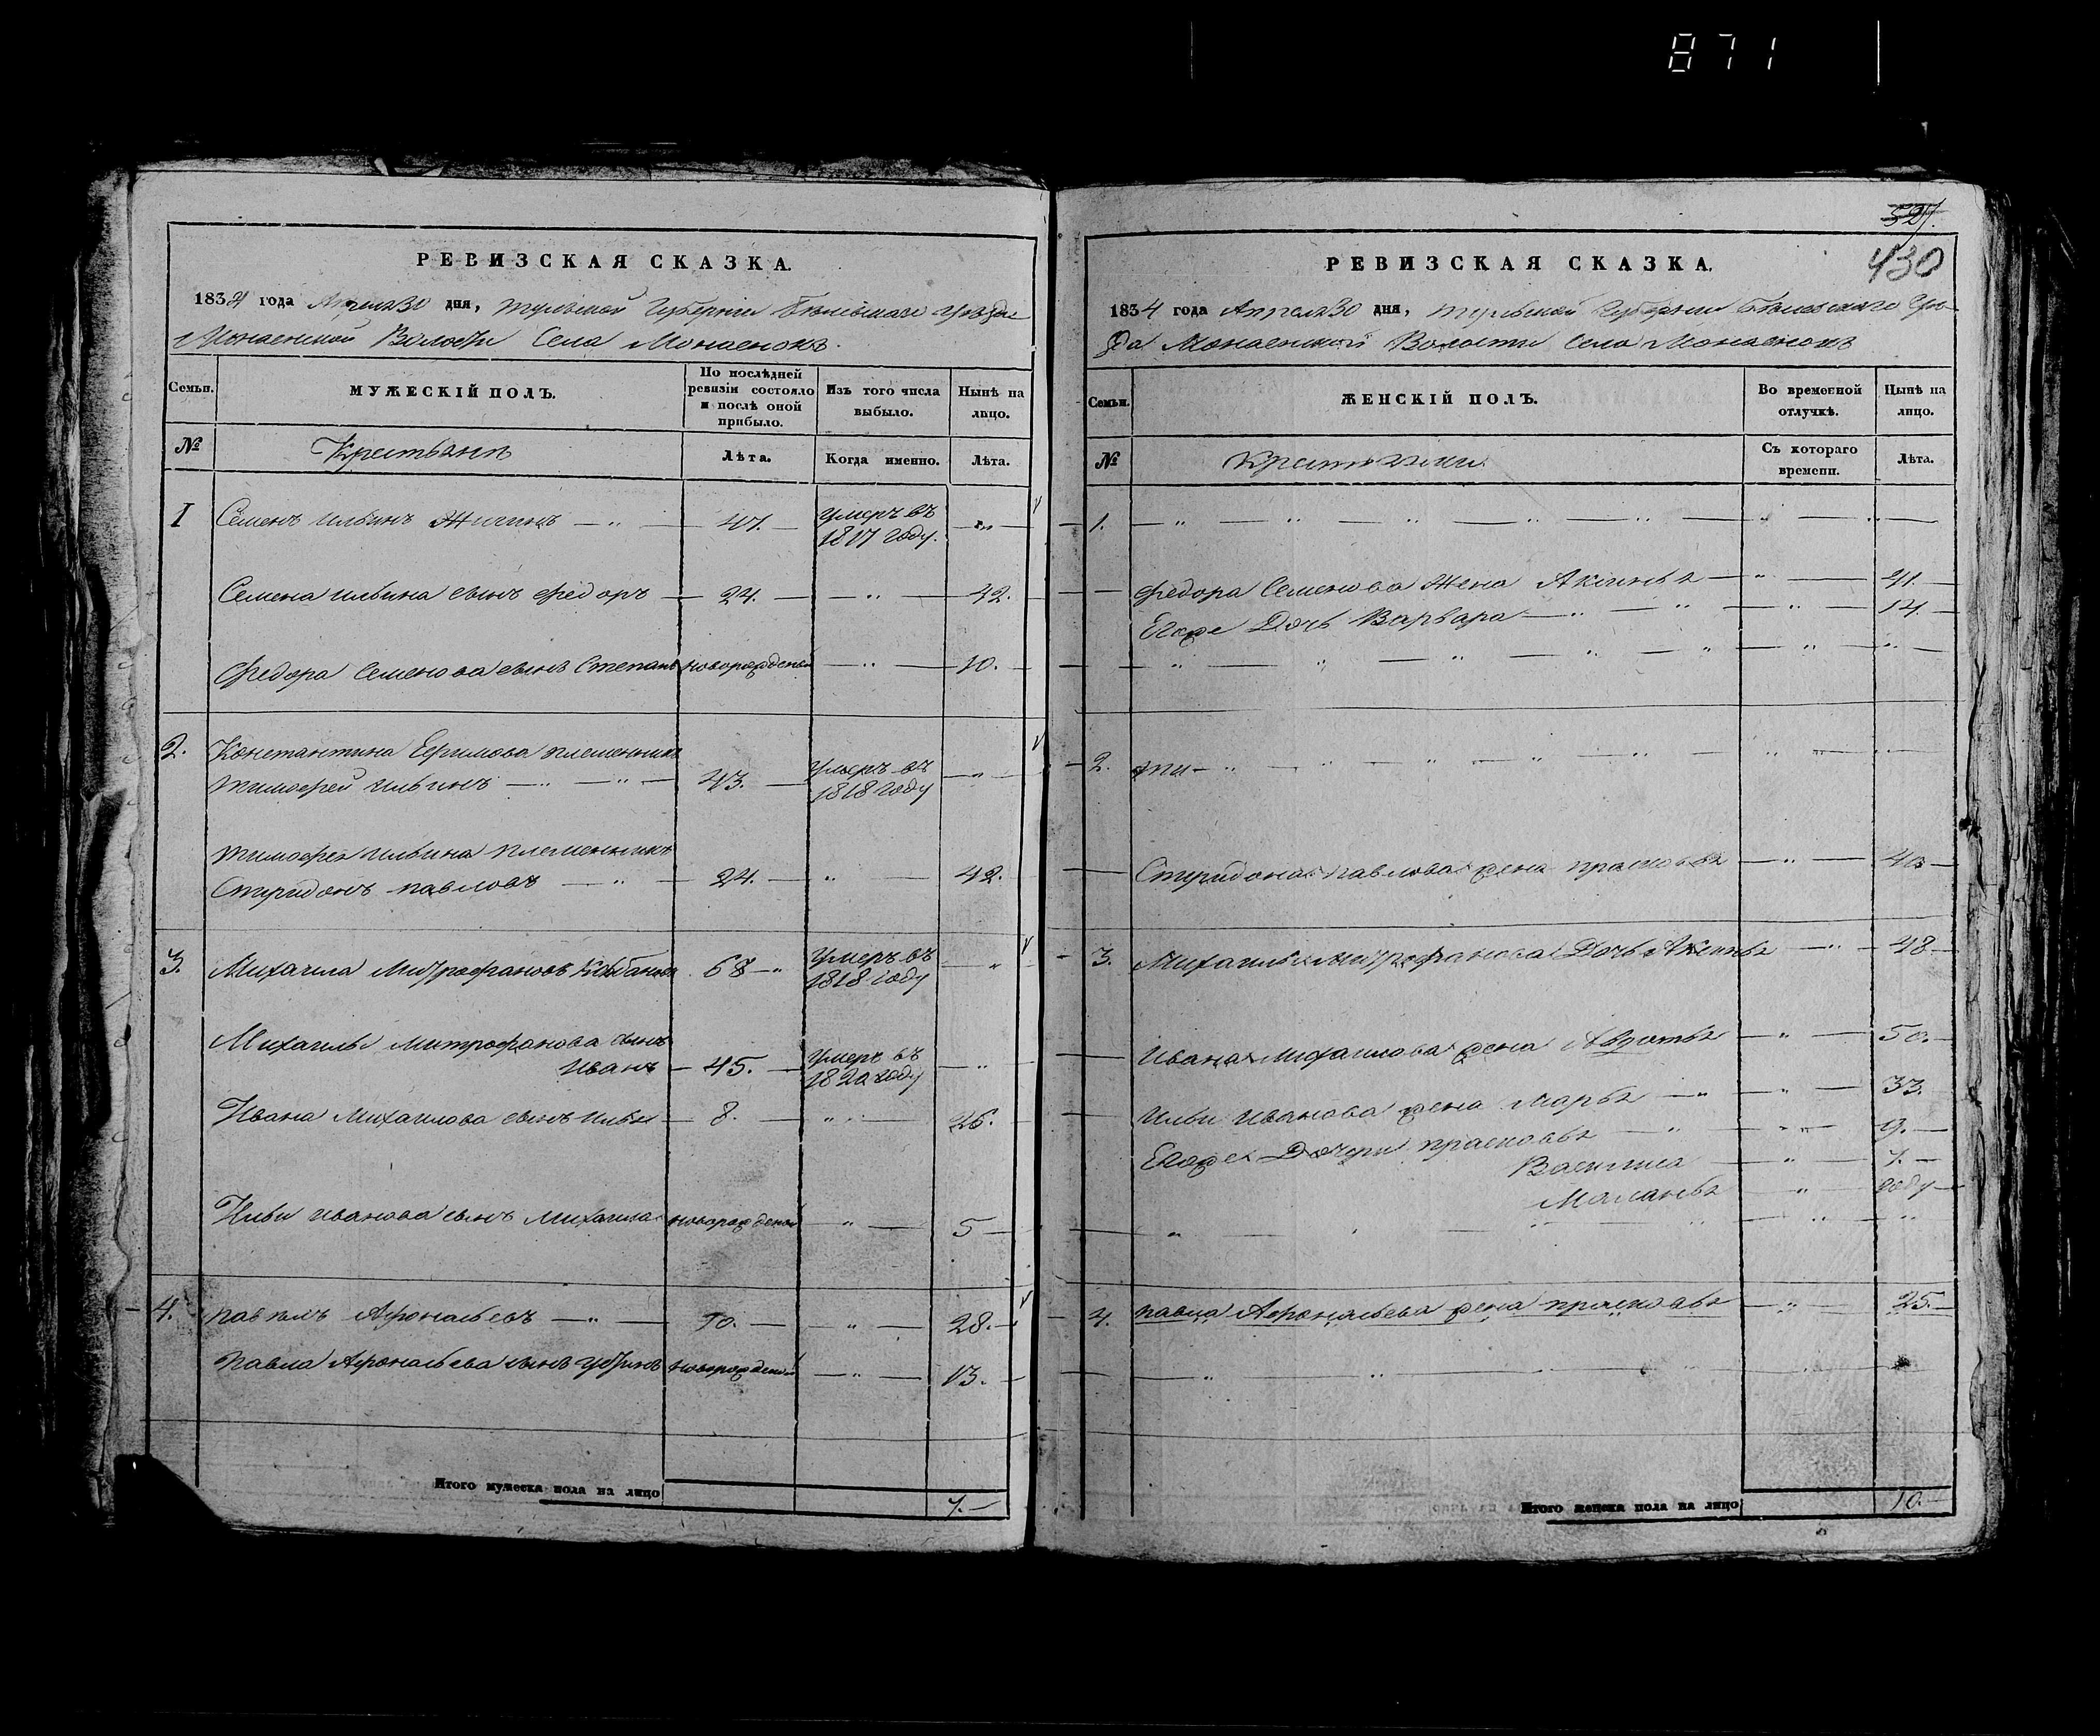 871
РЕВИЗСКАЯ СКАЗКА.
1834 года Апреля 30 дня, Тульской Губернии Белевскаго Уезда
Монаенской Волости Села Монаенокъ.
Семьи.
МУЖЕСКІЙ ПОЛЪ.
По послѣдней ревизіи состояло и послѣ оной прибыло.
Изъ того числа выбыло.
Нынѣ на лицо.
№
Крестьянъ
Лѣта.
Когда именно.
Лѣта.
I Семенъ Ильинъ — „ — 47. — умеръ въ 1817 году. — „ —
Семена Ильина сынъ Федоръ — 24. — — „ — 42.
Федора Семенова сынъ Степанъ новорожденъ — „ — 10.
2. Константина Ефимова племенникъ
Тимофей Ильинъ — „ — „ — 43. — умеръ въ 1818 году — „ —
Тимофея Ильина племенникъ
Спиридонъ Павловъ — „ — 24. — „ — 42.
3. Михаила Митрофановъ 68 — „ Умеръ въ 1818 году — „
Михаилы Митрофанова сынъ
Иванъ — 45. — Умеръ въ 1820 году — „ —
Ивана Михаилова сынъ Илья — 8. — „ — 26.
Ильи Иванова сынъ Михаила новорожденъ — „ — 5 —
4. Павелъ Афонасьевъ — „ — 10. — — „ — 28. —
Павла Афонасьева сынъ новорожденъ — „ — 13. —
Итого мужеска пола на лицо
7. —
527.
430
РЕВИЗСКАЯ СКАЗКА.
1834 года Апреля 30 дня, Тульской Губернии Белевскаго Уез-
да Монаенской Волости Села Монаенокъ
Семьи.
ЖЕНСКІЙ ПОЛЪ.
Во временной отлучкѣ.
Нынѣ на лицо.
№
Съ котораго времени.
Лѣта.
1. — „ — „ — „ — „ — „ — „ — „ —
Федора Семенова жена — „ — 41. —
Егоже Дочь Варвара — „ — „ — „ — 14 —
2. „ — „ — „ — „
Спиридона Павлова жена Прасковья — „ — 40 —
3. Михаилы Митрофанова Дочь — „ — 48 —
Ивана Михаилова жена Авдотья — „ — 50. —
Ильи Иванова жена Марья — „ — „ — 33.
Егоже Дочери Прасковья — „ — „ — 9. —
Василиса — „ — 7. —
Маланья — „ — году —
4. Павла Афонасьева жена Прасковья — „ — 25. —
Итого женска пола на лицо
10. —